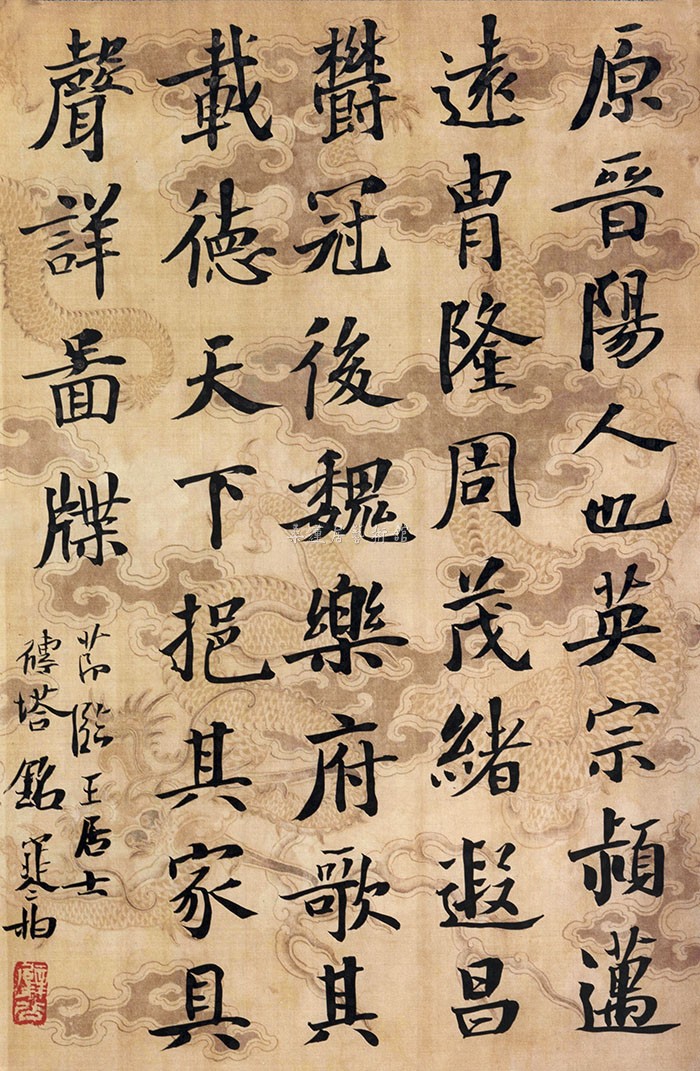 原晋陽人也英宗頴邁
遠胄隆周茂緒遐昌
欝冠後魏樂府歌其
載徳天下挹其家具
聲詳啚牒
節臨王居士
磚塔銘